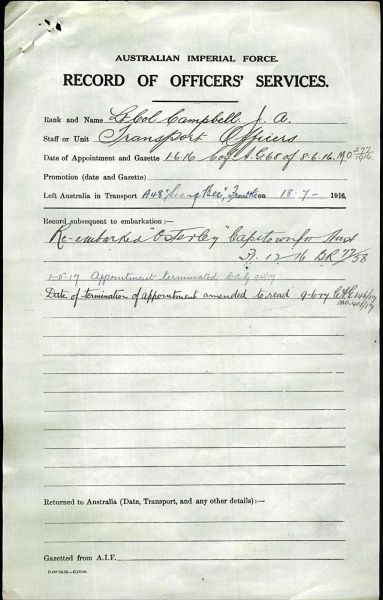 AUSTRALIAN IMPERIAL FORCE.
RECORD OF OFFICERS' SERVICES.
Rank and Name Lt Col Campbell. J. A.
Staff or Unit Transport Officers
Date of Appointment and Gazette 1.6.16 A.G. 68 of 8.6.16. M.O.
Promotion (date and Gazette)
Left Australia in Transport A48 "Seang Bee", on 18.7- 1916.
Record subsequent to embarkation :—
Re-embarked "Osterley" Capetown for Aust
12 16 BR 77/58
1-5-17 Appointment terminated
Date of termination of appointment amended to read 9-6-17 146/17
M.O. 401/17
Returned to Australia (Date, Transport, and any other details) :—
Gazetted from A.I.F.